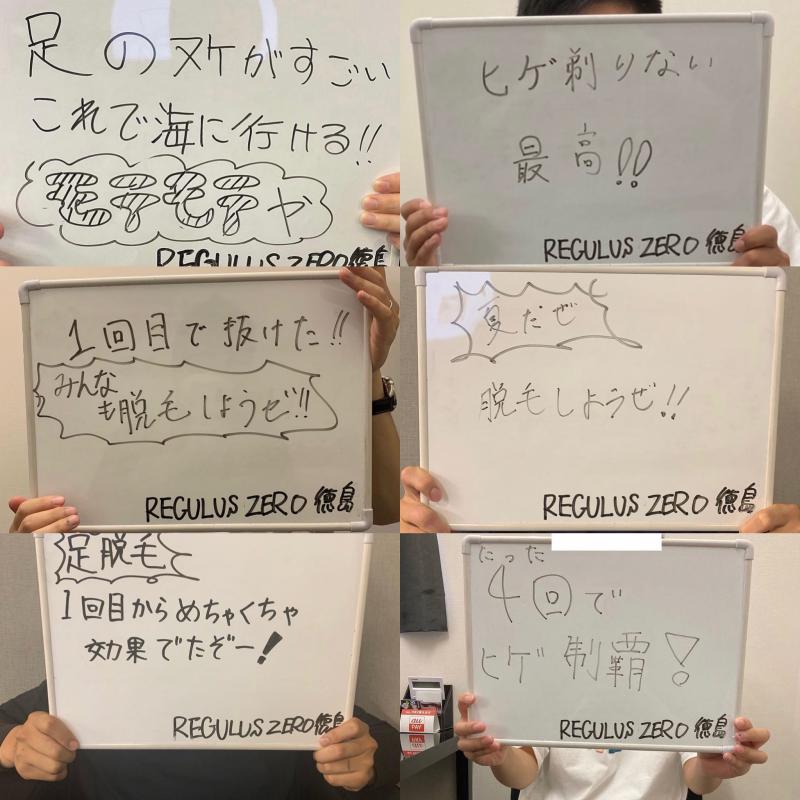 足のヌケがすごい
これで海に行ける!!
モテモテや
REGULUS ZERO徳島
ヒゲ剃りない
最高!!
REGULUS ZERO 徳島
1回目で抜けた!!
みんな
も脱毛しようぜ!!
REGULUS ZERO 徳島
夏だぜ
脱毛しようぜ!!
REGULUS ZERO 徳島
足脱毛
1回目からめちゃくちゃ
効果でたぞー!
REGULUS ZERO徳島
たった
4回で
ヒゲ制覇!
REGULUS ZERO 徳島
au
PAY